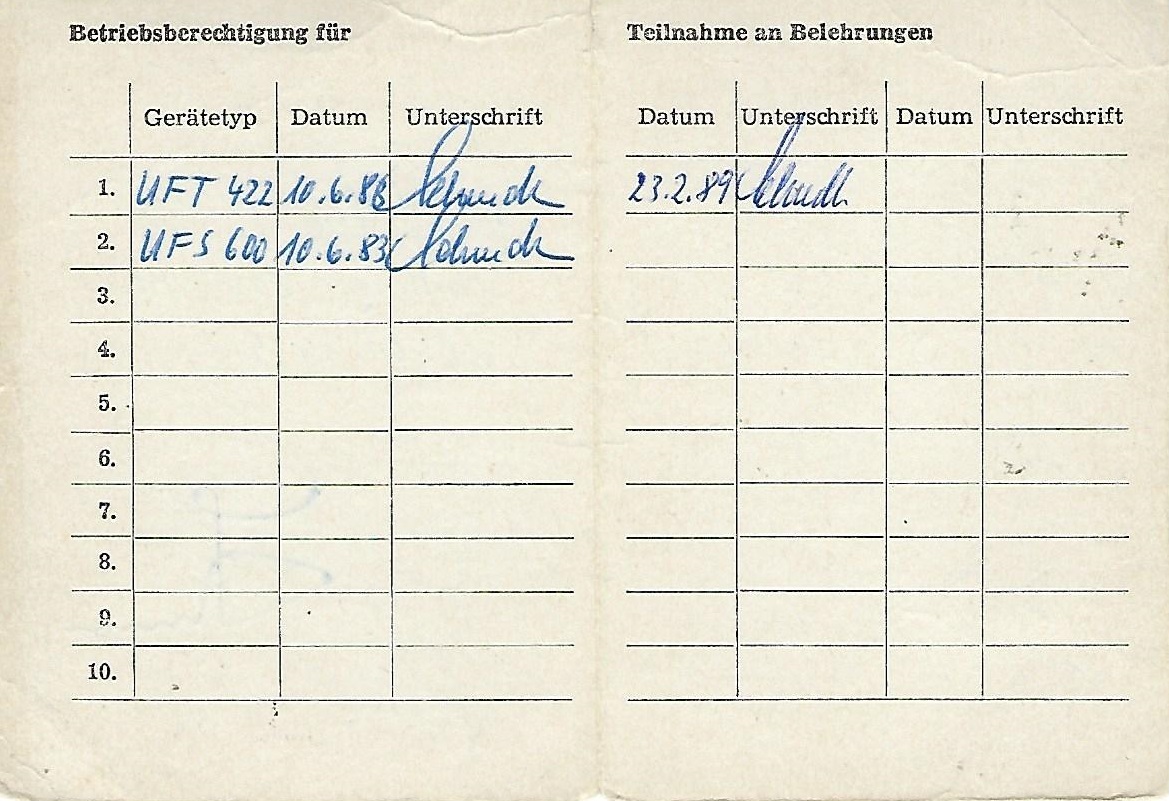 Betriebsberechtigung für
Gerätetyp Datum Unterschrift
1. UFT 422 10.6.88
2. UFS 600 10.6.83
3.
4.
5.
6.
7.
8.
9.
10.
Teilnahme an Belehrungen
Datum Unterschrift Datum Unterschrift
23.2.89